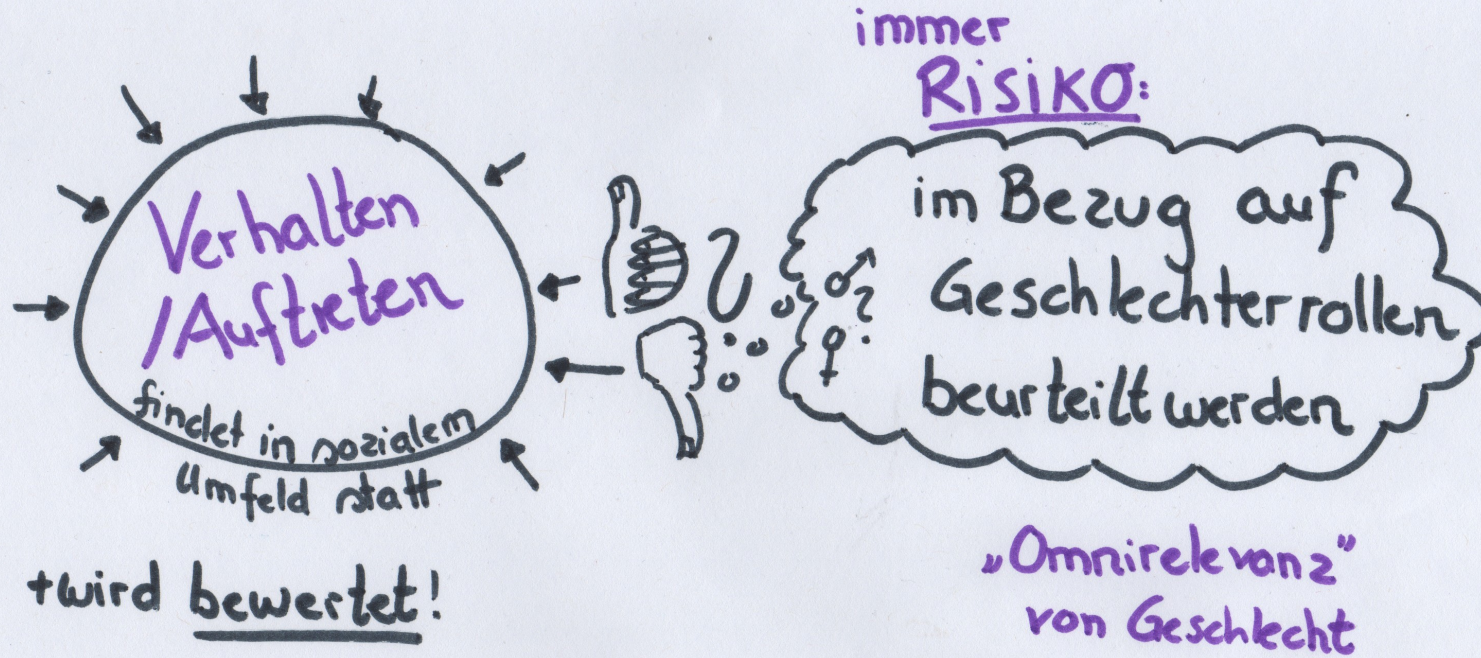 Verhalten
/Auftreten
findet in sozialem
Umfeld statt
+wird bewertet!
immer
Risiko:
im Bezug auf
Geschlechterrollen
beurteilt werden
„Omnirelevanz”
von Geschlecht